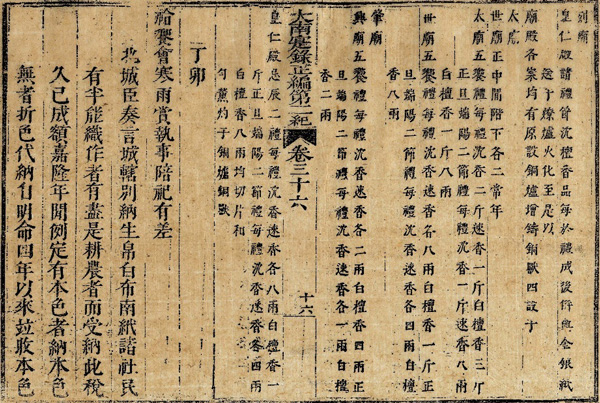 列廟
皇仁殿請禮曾沉檀香品每於禮成後併與金銀紙
送于燎爐火化至是以
廟殿各案均有原設銅爐增鑄銅獸四設于
太廟
世廟正中間陪下各二常年
太廟五饗禮每禮沉香二斤速香一斤白檀香三斤
正旦端陽二節禮每禮沉香一斤速香八兩
白檀香一斤八兩
世廟五饗禮每禮沉香速香各八兩白檀香一斤正
旦端陽二節禮每禮沉香速香各四兩白檀
香八兩
肇廟
興廟五饗禮每禮沉香速香各二兩白檀香四兩正
旦端陽二節禮每禮沉香速香各一兩白檀
香二兩
大南寔錄正編第二紀 卷三十六 十六
皇仁殿忌辰二禮每禮沉香速香各八兩白檀香一
斤正旦端陽二節禮每禮沉香速香各四兩
白檀香八兩均切片和
勻薰灼于銅爐銅獸
丁卯
祫饗會寒雨賞執事陪祀有差
北城臣奏言城轄別納生帛白布南紙諸社民
有半能織作者有盡是耕農者而受納此稅
久已成額嘉隆年間例定有本色者納本色
無者折色代納自明命四年以來竝收本色